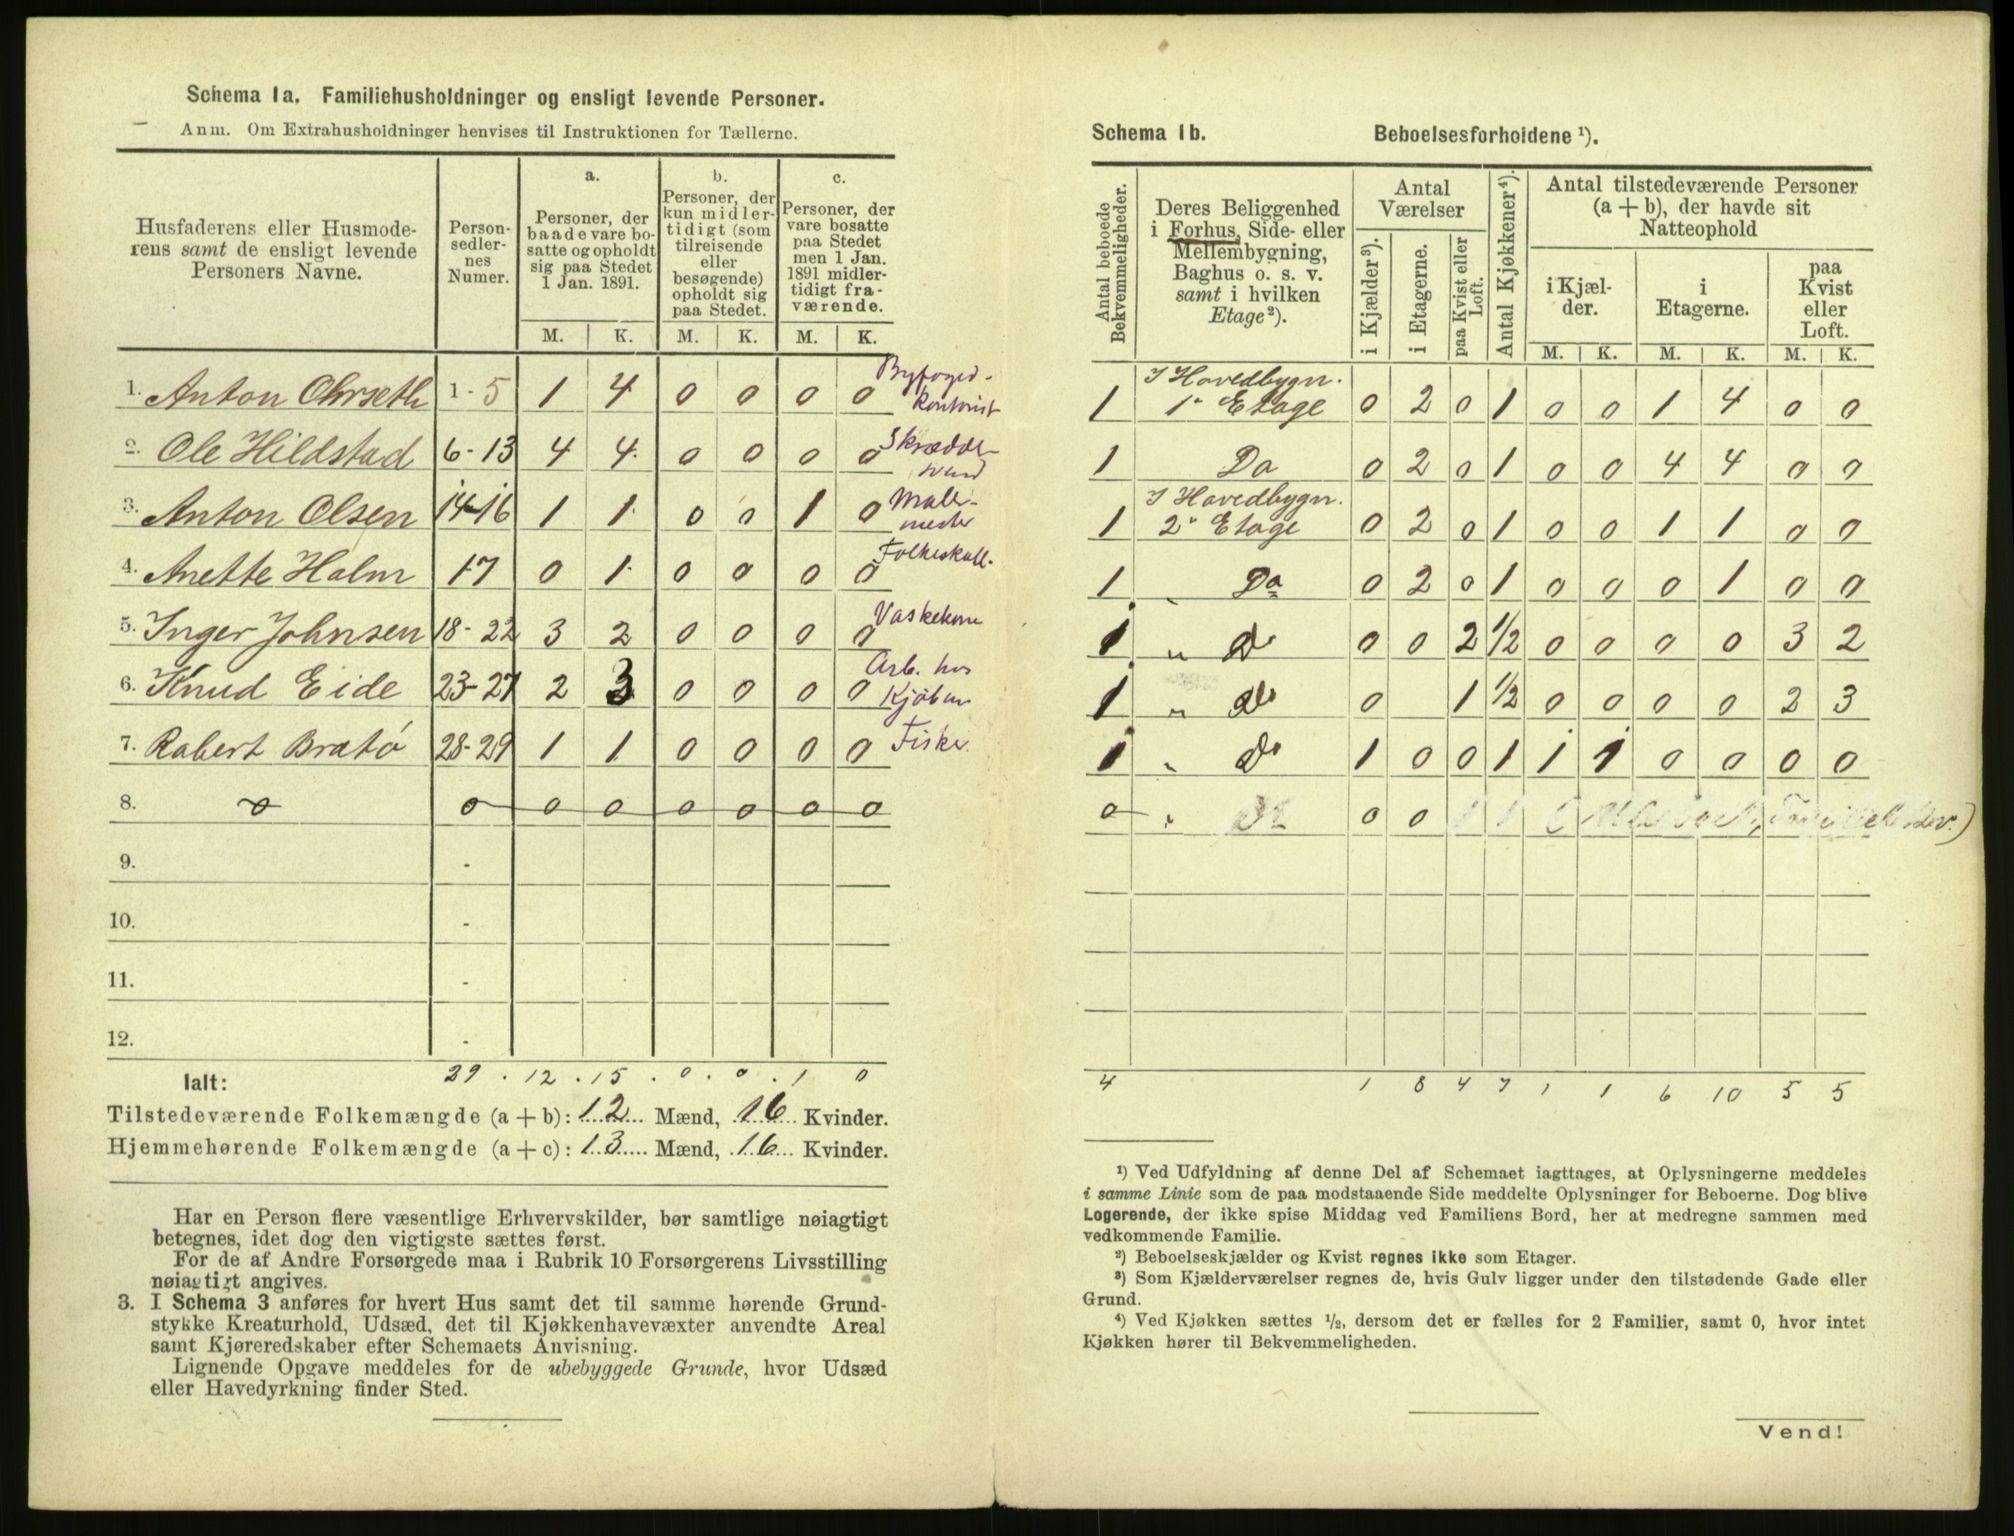 Schema 1a. Familiehusholdninger og ensligt levende Personer.
Anm. Om Extrahusholdninger henvises til Instruktionen for Tællerne.
Husfaderens eller Husmoderens samt de ensligt levende Personers Navne.
Personsedlernes Numer.
a. Personer, der baade vare bosatte og opholdt sig paa Stedet 1 Jan. 1891.
b. Personer, der kun midlertidigt (som tilreisende eller besøgende) opholdt sig paa Stedet.
c. Personer, der vare bosatte paa Stedet men 1 Jan. 1891 midlertidigt fraværende.
M. K. M. K. M. K.
1. Anton Ohrseth 1-5 1 4 0 0 0 0 Byfoged-kontorist
2. Ole Hildstad 6-13 4 4 0 0 0 0 Skrædde-svend
3. Anton Olsen 14-16 1 1 0 0 1 0 Malermester
4. Anette Holm 17 0 1 0 0 0 0 Folkeskoll.
5. Inger Johnsen 18-22 3 2 0 0 0 0 Vaskekone
6. Knud Eide 23-27 2 3 0 0 0 0 Arb. hos Kjøbm
7. Robert Bratø 28-29 1 1 0 0 0 0 Fisker
8. 0 0 0 0 0 0 0 0
9. -
10. -
11. -
12. -
Ialt: 29 . 12 . 15 . 0 . 0 . 1 0
Tilstedeværende Folkemængde (a + b): 12 Mænd, 16 Kvinder.
Hjemmehørende Folkemængde (a + c): 13 Mænd, 16 Kvinder.
Har en Person flere væsentlige Erhvervskilder, bør samtlige nøiagtigt
betegnes, idet dog den vigtigste sættes først.
For de af Andre Forsørgede maa i Rubrik 10 Forsørgerens Livsstilling
nøiagtigt angives.
3. I Schema 3 anføres for hvert Hus samt det til samme hørende Grund-
stykke Kreaturhold, Udsæd, det til Kjøkkenhavevæxter anvendte Areal
samt Kjøreredskaber efter Schemaets Anvisning.
Lignende Opgave meddeles for de ubebyggede Grunde, hvor Udsæd
eller Havedyrkning finder Sted.
Schema 1b. Beboelsesforholdene ¹).
Antal beboede Bekvemmeligheder.
Deres Beliggenhed i Forhus, Side- eller Mellembygning, Baghus o. s. v. samt i hvilken Etage ²).
Antal Værelser
i Kjælder ³).
i Etagerne.
paa Kvist eller Loft.
Antal Kjøkkener ⁴).
Antal tilstedeværende Personer (a + b), der havde sit Natteophold
i Kjælder.
i Etagerne.
paa Kvist eller Loft.
M. K. M. K. M. K.
1 I Hovedbygn. 1. Etage 0 2 0 1 0 0 1 4 0 0
1 Do 0 2 0 1 0 0 4 4 0 0
1 I Hovedbygn. 2. Etage 0 2 0 1 0 0 1 1 0 0
1 " Do 0 2 0 1 0 0 0 1 0 0
1 " Do 0 0 2 1/2 0 0 0 0 3 2
1 " Do 0 1 1/2 0 0 0 0 2 3
1 " Do 1 0 0 1 1 1 0 0 0 0
0 " Do 0 0 1 1
4 1 8 4 7 1 1 6 10 5 5
¹) Ved Udfyldning af denne Del af Schemaet iagttages, at Oplysningerne meddeles
i samme Linie som de paa modstaaende Side meddelte Oplysninger for Beboerne. Dog blive
Logerende, der ikke spise Middag ved Familiens Bord, her at medregne sammen med
vedkommende Familie.
²) Beboelseskjælder og Kvist regnes ikke som Etager.
³) Som Kjælderværelser regnes de, hvis Gulv ligger under den tilstødende Gade eller
Grund.
⁴) Ved Kjøkken sættes ½, dersom det er fælles for 2 Familier, samt 0, hvor intet
Kjøkken hører til Bekvemmeligheden.
Vend!